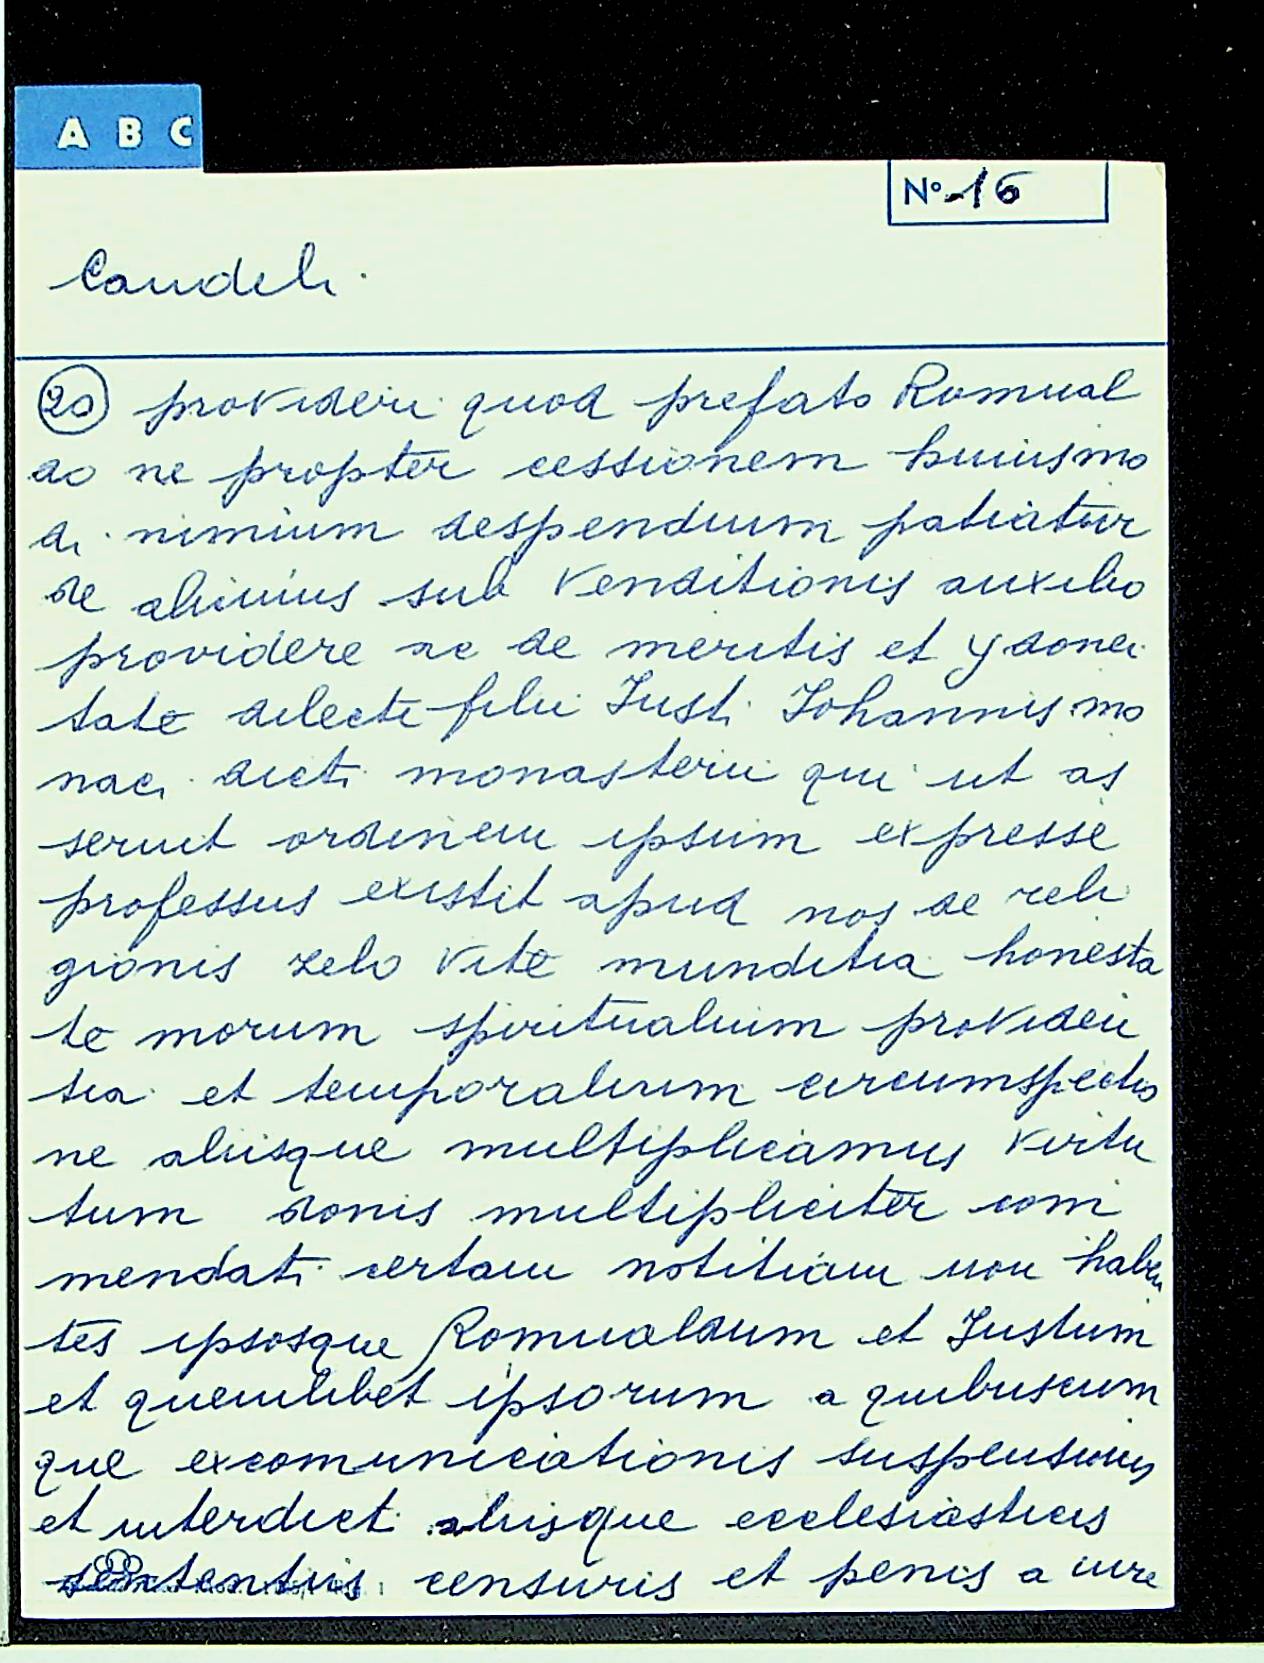 A B C
N° 16
Candeli.
20 provideri quod prefato Romual
do ne propter cessionem huiusmo
di nimium despendium patiatur
de alicuius sub venditionis auxilio
providere ac de meritis et ydonei
tate dilecti filii Justi Johannis mo
naci dicti monasterii qui ut as
seruit ordinem ipsum expresse
professus existit apud nos de reli
gionis zelo vite munditia honesta
te morum spiritualium providen
tia et temporalium circumspectio
ne aliisque multiplicamus virtu
tum donis multipliciter com
mendati certam notitiam non haben
tes ipsosque Romualdum et Justum
et quemlibet ipsorum a quibuscum
que excomunicationis suspensionis
et interdicti aliisque ecclesiasticis
sententiis censuris et penis a iure